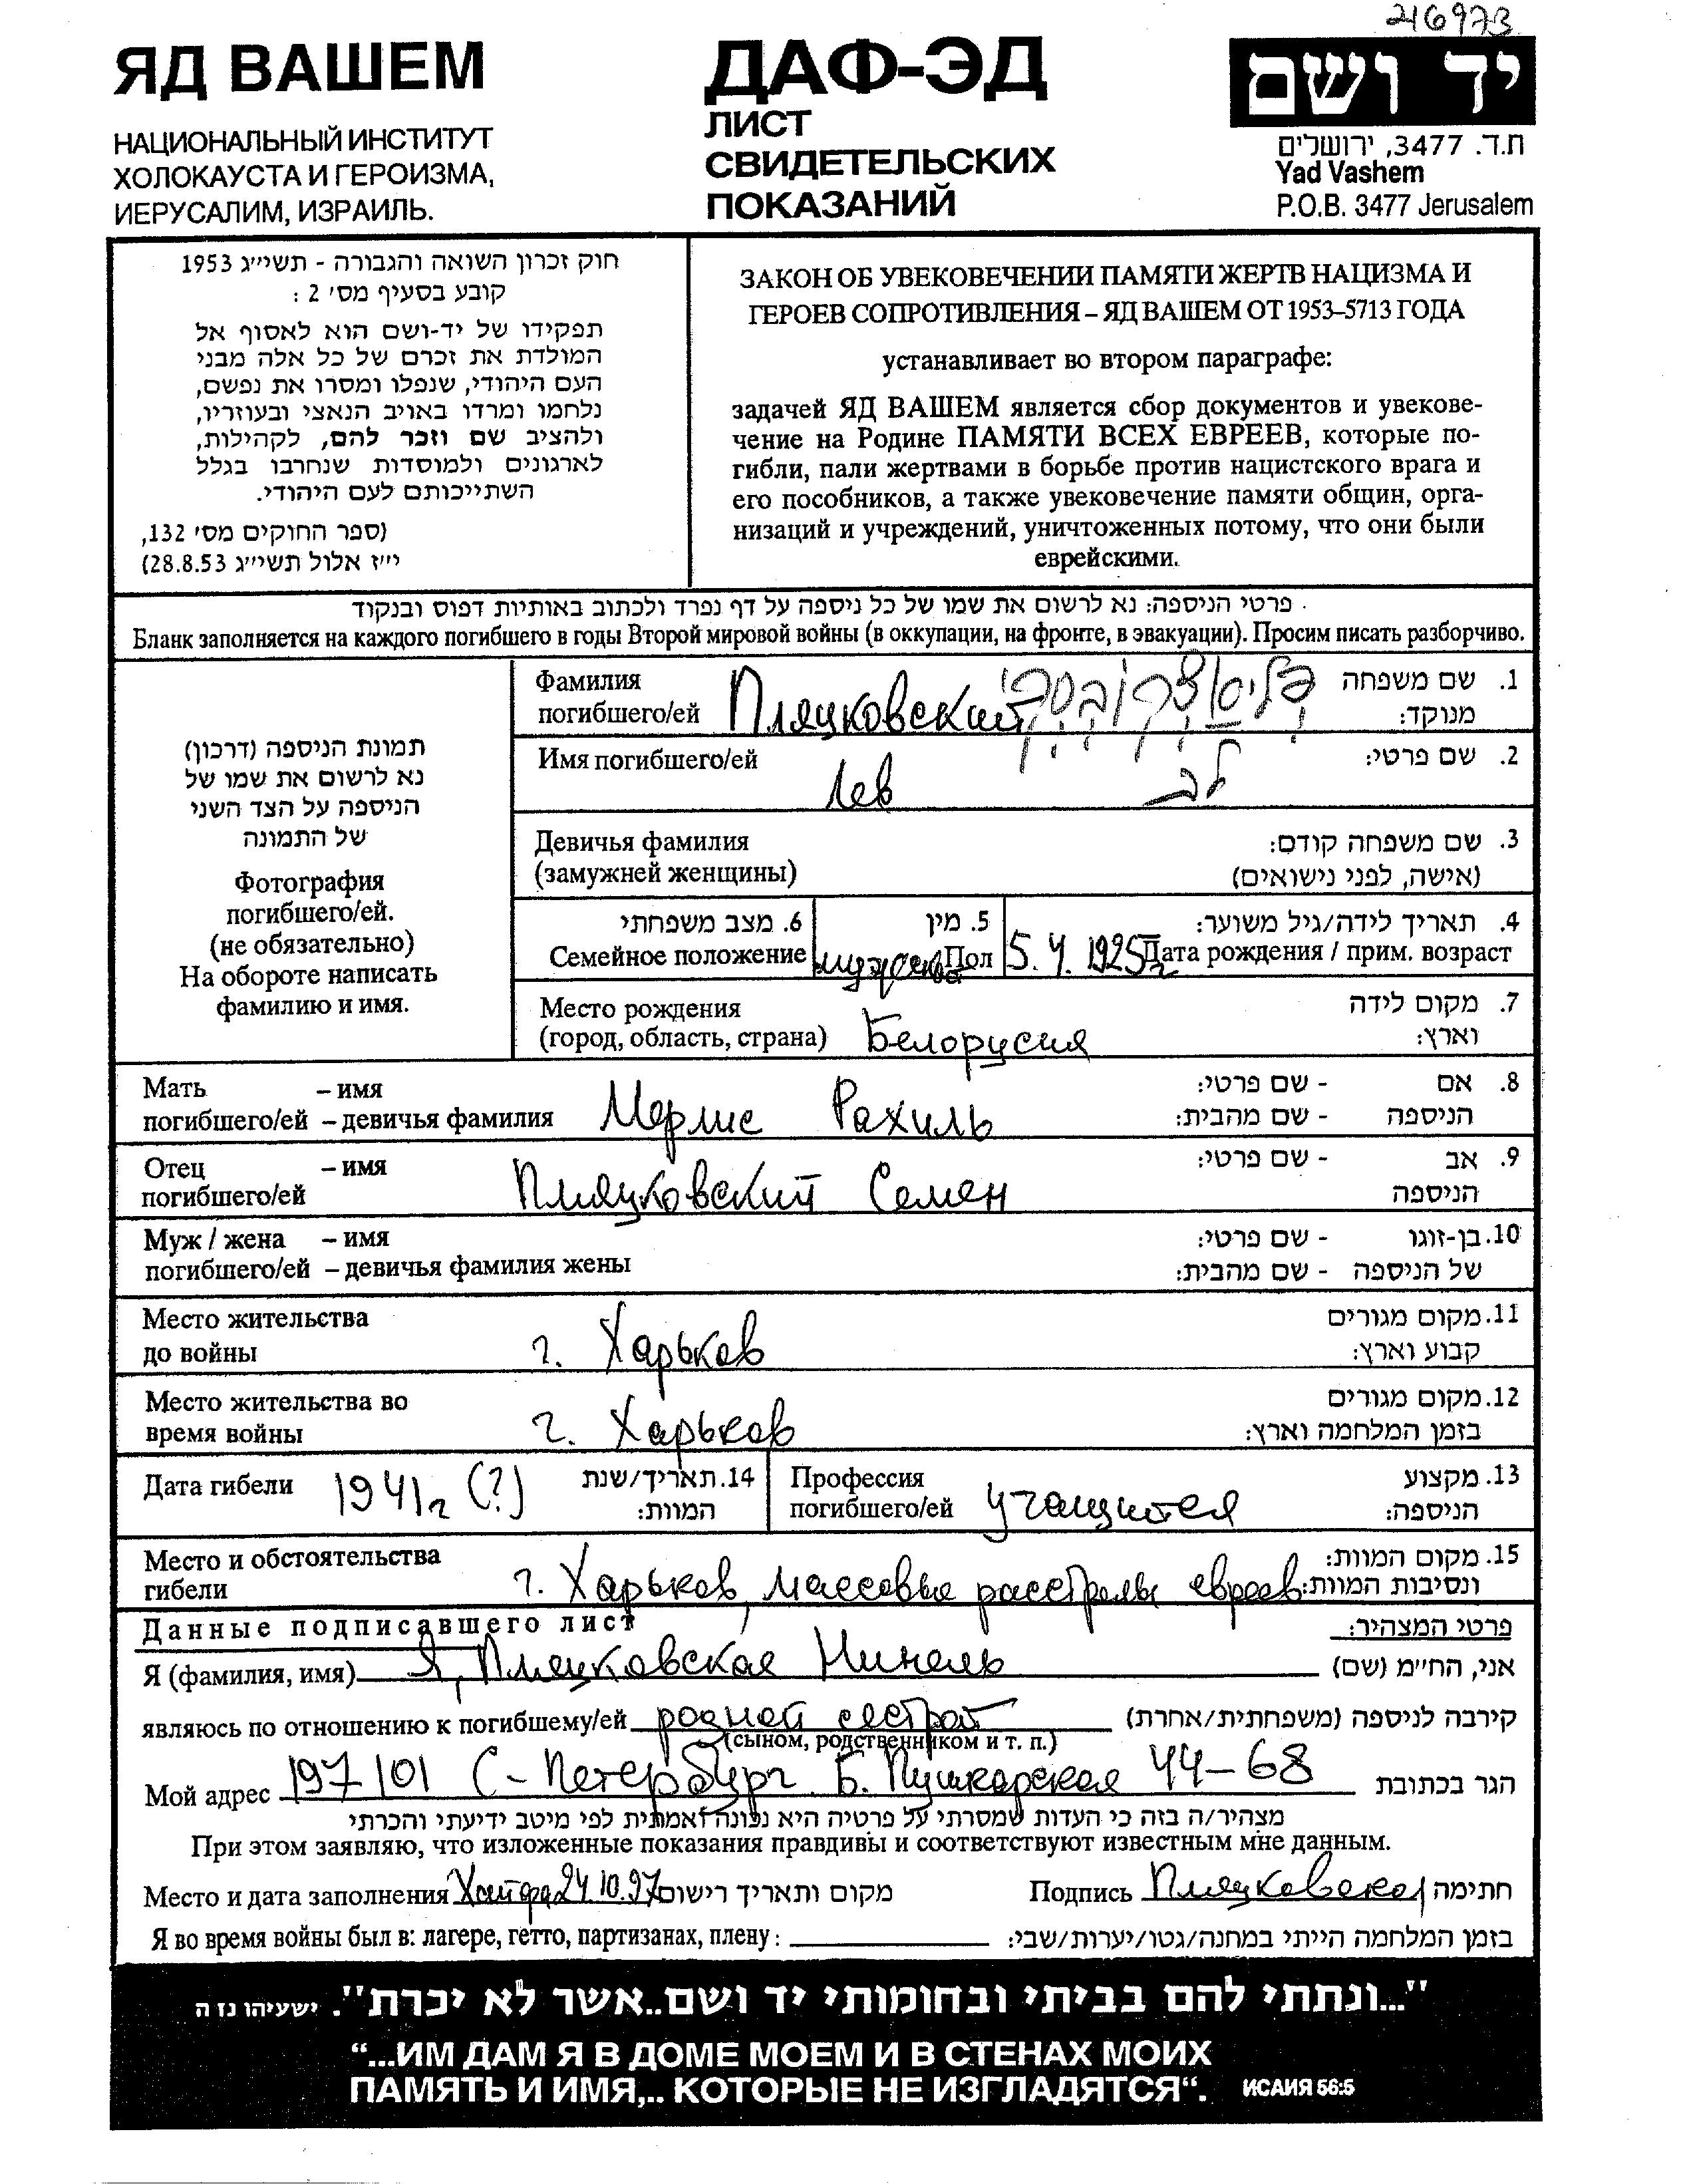 216973
ЯД ВАШЕМ
НАЦИОНАЛЬНЫЙ ИНСТИТУТ
ХОЛОКАУСТА И ГЕРОИЗМА,
ИЕРУСАЛИМ, ИЗРАИЛЬ.
ДАФ-ЭД
ЛИСТ
СВИДЕТЕЛЬСКИХ
ПОКАЗАНИЙ
יד ושם
ת.ד. 3477, ירושלים
Yad Vashem
P.O.B. 3477 Jerusalem
חוק זכרון השואה והגבורה - תשי״ג 1953
קובע בסעיף מס׳ 2 :
תפקידו של יד-ושם הוא לאסוף אל
המולדת את זכרם של כל אלה מבני
העם היהודי, שנפלו ומסרו את נפשם,
נלחמו ומרדו באויב הנאצי ובעוזריו,
ולהציב שם וזכר להם, לקהילות,
לארגונים ולמוסדות שנחרבו בגלל
השתייכותם לעם היהודי.
(ספר החוקים מס׳ 132,
י״ז אלול תשי״ג 28.8.53)
ЗАКОН ОБ УВЕКОВЕЧЕНИИ ПАМЯТИ ЖЕРТВ НАЦИЗМА И
ГЕРОЕВ СОПРОТИВЛЕНИЯ – ЯД ВАШЕМ ОТ 1953–5713 ГОДА
устанавливает во втором параграфе:
задачей ЯД ВАШЕМ является сбор документов и увекове-
чение на Родине ПАМЯТИ ВСЕХ ЕВРЕЕВ, которые по-
гибли, пали жертвами в борьбе против нацистского врага и
его пособников, а также увековечение памяти общин, орга-
низаций и учреждений, уничтоженных потому, что они были
еврейскими.
פרטי הניספה: נא לרשום את שמו של כל ניספה על דף נפרד ולכתוב באותיות דפוס ובנקוד
Бланк заполняется на каждого погибшего в годы Второй мировой войны (в оккупации, на фронте, в эвакуации). Просим писать разборчиво.
תמונת הניספה (דרכון)
נא לרשום את שמו של
הניספה על הצד השני
של התמונה
Фотография
погибшего/ей.
(не обязательно)
На обороте написать
фамилию и имя.
Фамилия
погибшего/ей Пляцковский פליאצקובסקי
1. שם משפחה
מנוקד:
Имя погибшего/ей Лев לב 2. שם פרטי:
Девичья фамилия
(замужней женщины)
3. שם משפחה קודם:
(אישה, לפני נישואים)
6. מצב משפחתי
Семейное положение
5. מין
Пол мужской
4. תאריך לידה/גיל משוער:
5. 4. 1925 г Дата рождения / прим. возраст
Место рождения
(город, область, страна) Белорусия
7. מקום לידה
וארץ:
Мать – имя
погибшего/ей – девичья фамилия Мерлис Рахиль
8. אם - שם פרטי:
הניספה - שם מהבית:
Отец – имя
погибшего/ей Пляцковский Семен
9. אב - שם פרטי:
הניספה
Муж / жена – имя
погибшего/ей – девичья фамилия жены
10. בן-זוגו - שם פרטי:
של הניספה - שם מהבית:
Место жительства
до войны г. Харьков
11. מקום מגורים
קבוע וארץ:
Место жительства во
время войны г. Харьков
12. מקום מגורים
בזמן המלחמה וארץ:
Дата гибели 1941 г (?)
14. תאריך/שנת
המוות:
Профессия
погибшего/ей учащийся
13. מקצוע
הניספה:
Место и обстоятельства
гибели г. Харьков, массовые расстрелы евреев
15. מקום המוות:
ונסיבות המוות:
Данные подписавшего лист פרטי המצהיר:
Я (фамилия, имя) Я, Пляцковская Нинель אני, החי״מ (שם)
являюсь по отношению к погибшему/ей родной сестрой קירבה לניספה (משפחתית/אחרת)
(сыном, родственником и т. п.)
Мой адрес 197101 С-Петербург Б. Пушкарская 44-68 הגר בכתובת
מצהיר/ה בזה כי העדות שמסרתי על פרטיה היא נכונה ואמתית לפי מיטב ידיעתי והכרתי
При этом заявляю, что изложенные показания правдивы и соответствуют известным мне данным.
Место и дата заполнения Хайфа 24.10.97 מקום ותאריך רישום Подпись Пляцковская חתימה
Я во время войны был в: лагере, гетто, партизанах, плену : בזמן המלחמה הייתי במחנה/גטו/יערות/שבי:
"...ונתתי להם בביתי ובחומותי יד ושם..אשר לא יכרת". ישעיהו נז ה
“...ИМ ДАМ Я В ДОМЕ МОЕМ И В СТЕНАХ МОИХ
ПАМЯТЬ И ИМЯ,.. КОТОРЫЕ НЕ ИЗГЛАДЯТСЯ“. ИСАИЯ 56:5